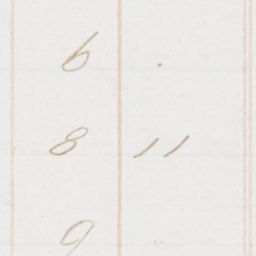 6 .
8 11
9